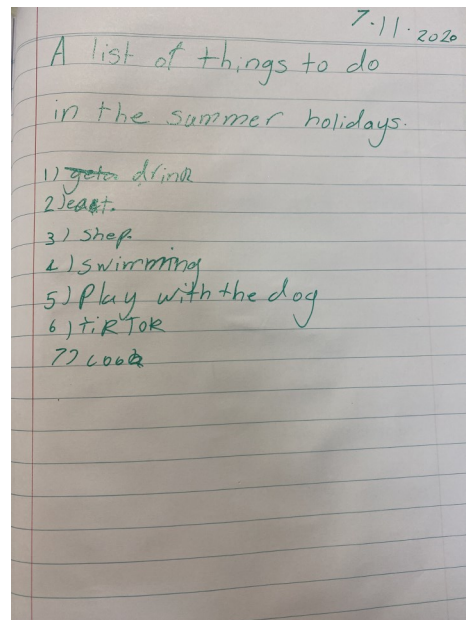 7.11.2020
A list of things to do
in the summer holidays.
1) drink
2) eat.
3) shep.
4) swimming
5) Play with the dog
6) tiKToK
7) cook